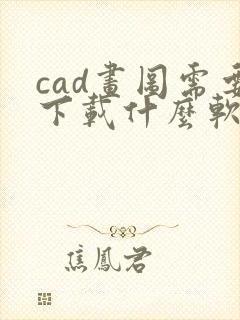 cad畫圖需要
下載什麼軟
焦鳳君